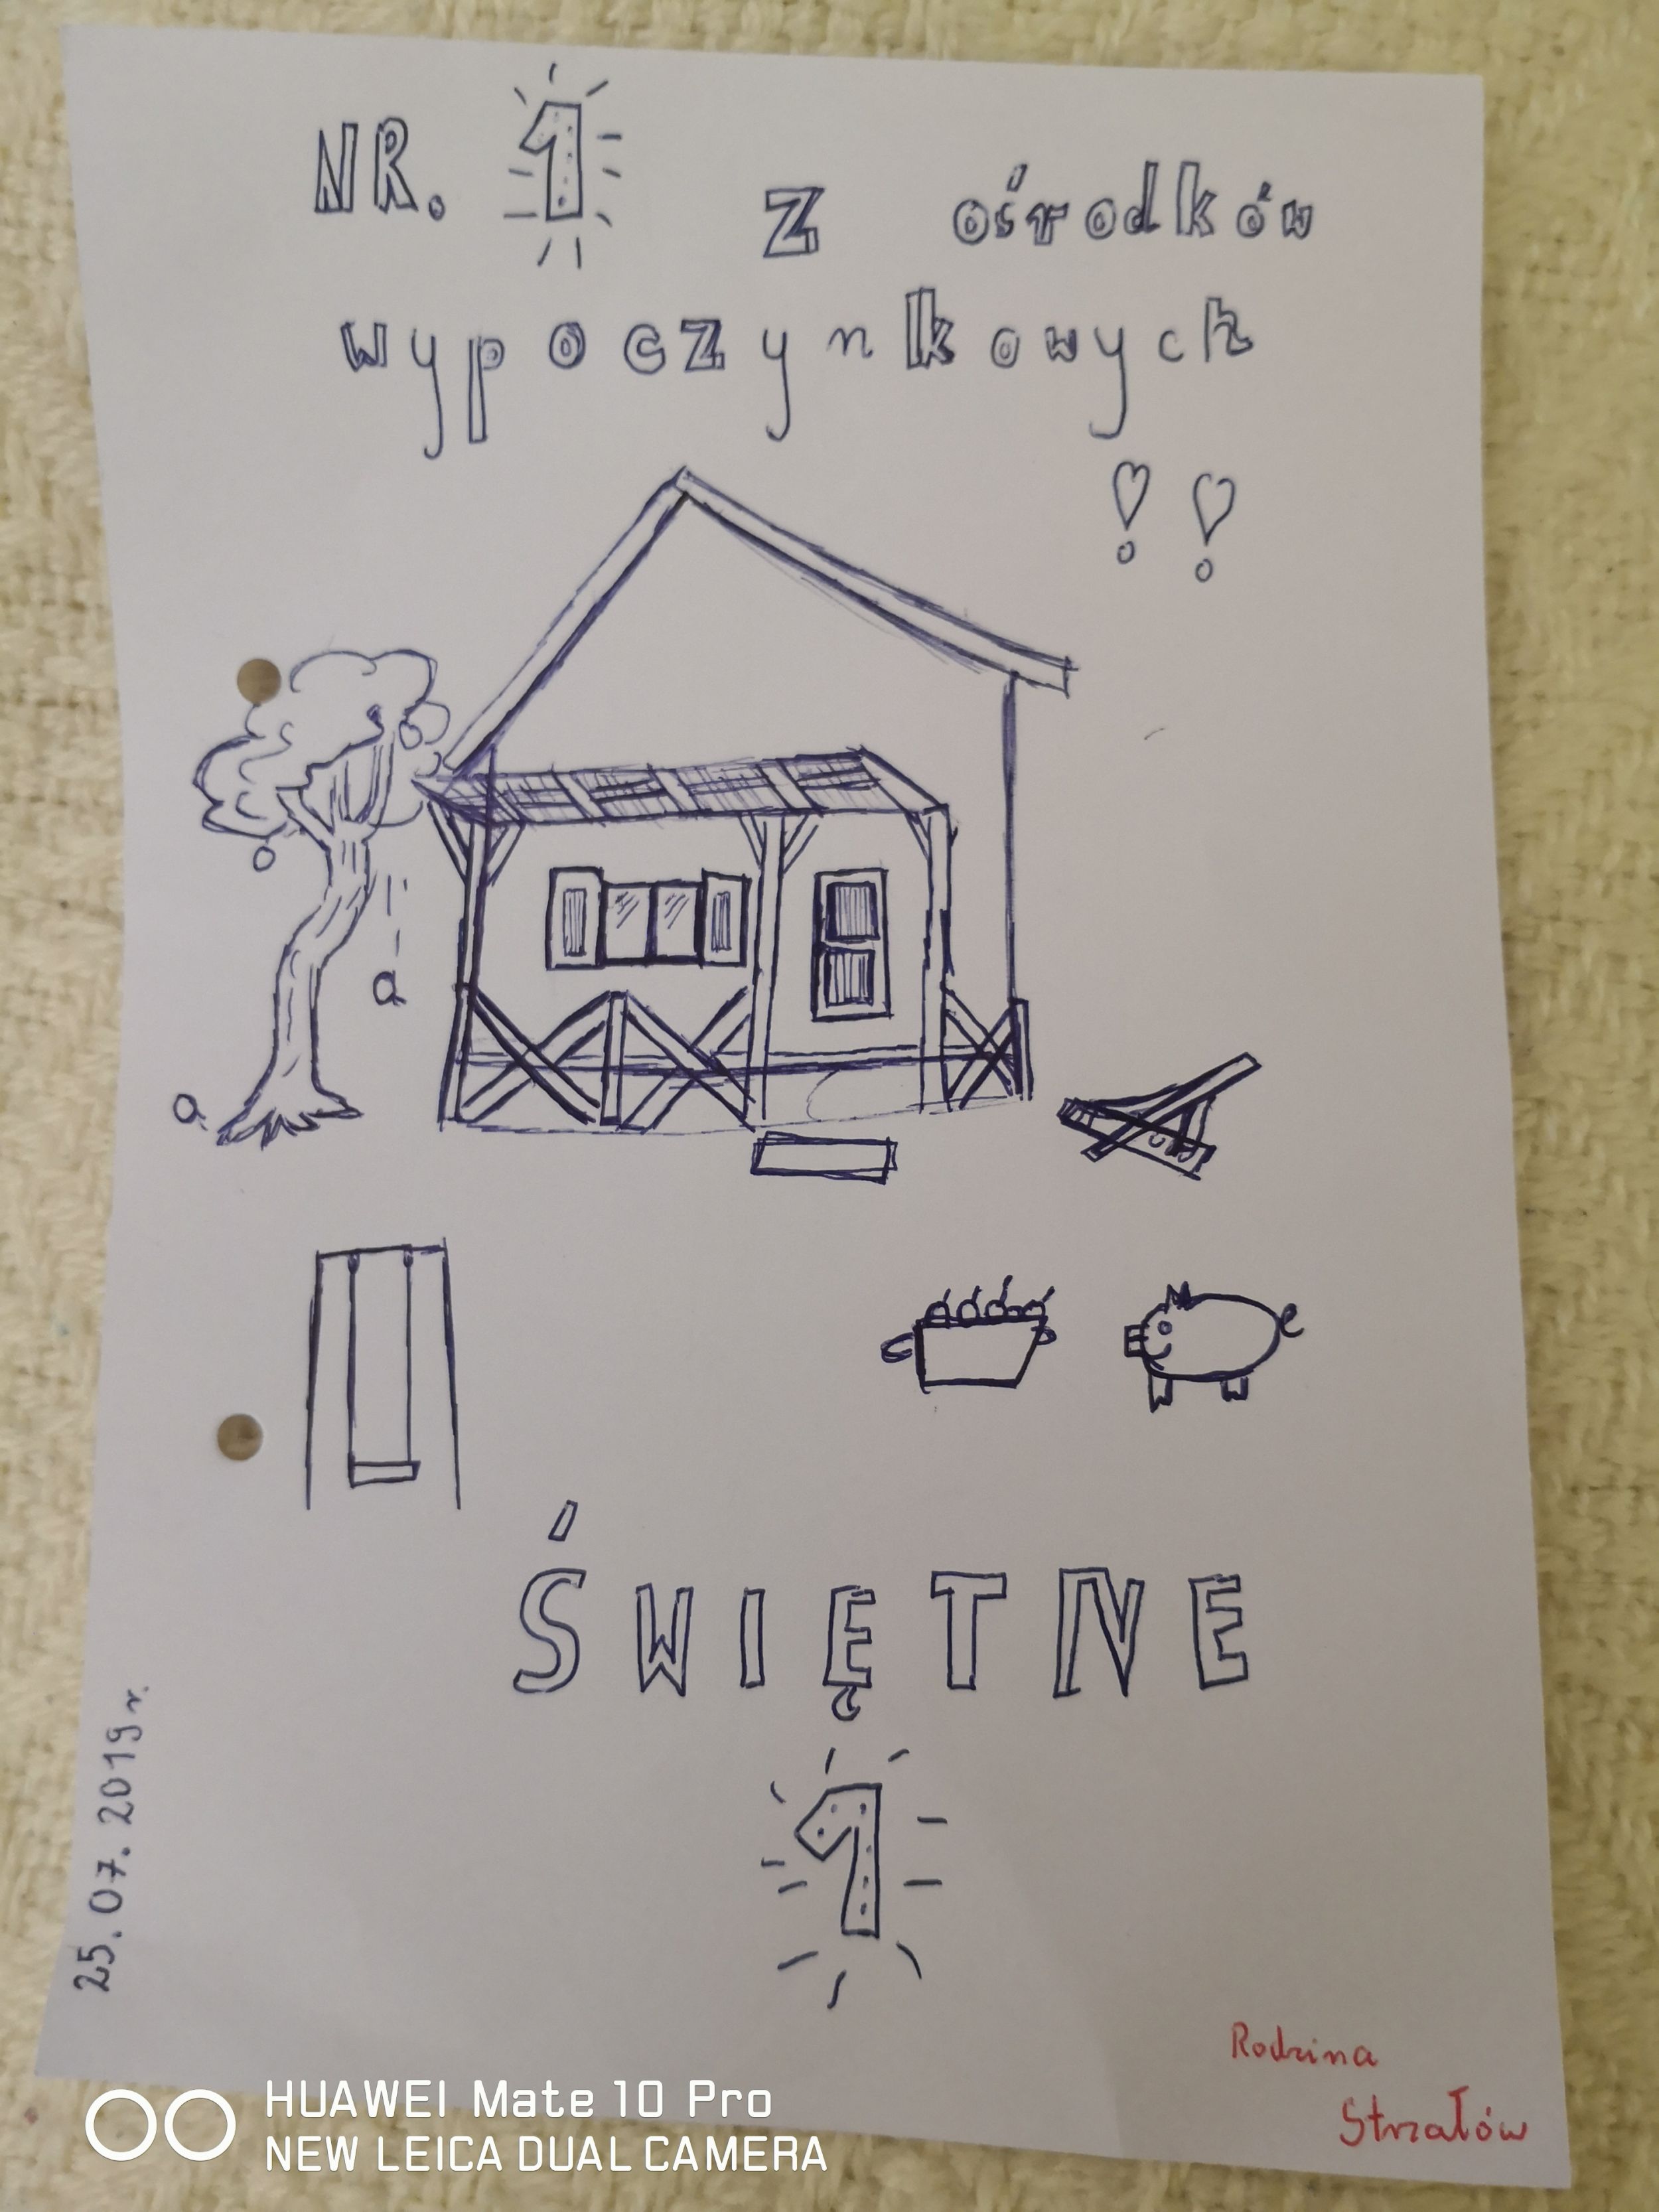 NR. 1 z ośrodków
wypoczynkowych
!!
ŚWIĘTNE
1
25.07.2019r.
Rodzina
Strzałów
HUAWEI Mate 10 Pro
NEW LEICA DUAL CAMERA